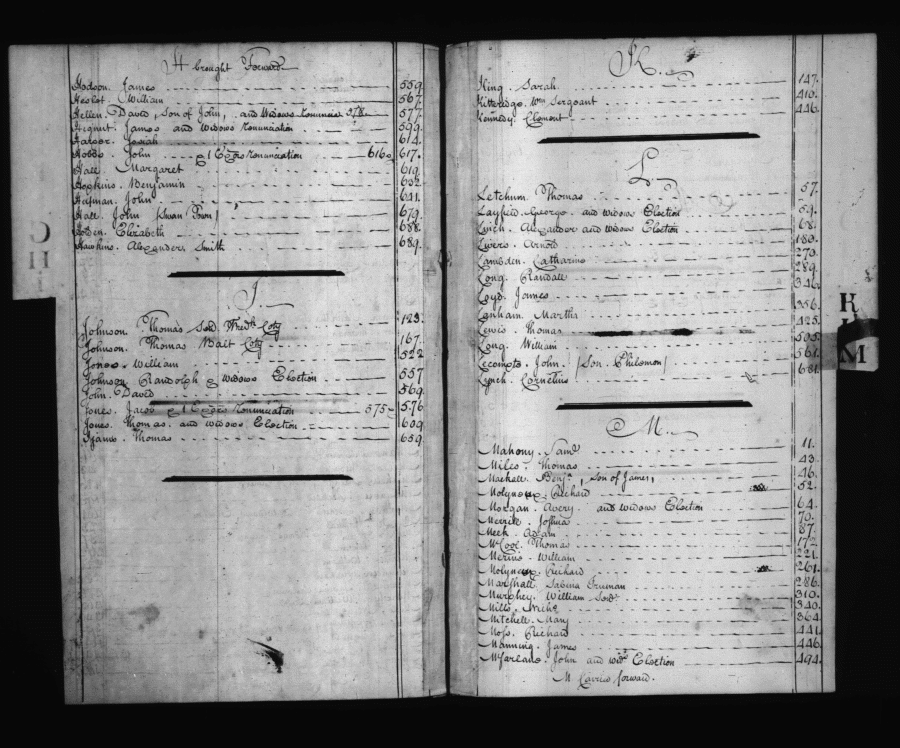 H brought Forward
Hodson. James 559.
Heslot. William 567.
Hellen. David, Son of John, and Widows Renuncia. 578 577.
James and Widows Renunciation 599.
Harper. Josiah 614.
Hobbs. John & 1 Exors Renunciation 616. 617.
Hall. Margaret 619.
Hopkins. Benjamin 632.
John 641.
Hall. John (Swan Town) 679.
Holden. Elizabeth 688.
Hawkins. Alexander Smith 689.
J.
Johnson. Thomas Senr. Fredk. Coty 123.
Johnson. Thomas Balt. Coty 167.
Jones. William 522
Johnson. Randolph & Widows Election 557
John. David 569.
Jones. Jacob & 1 Exors Renunciation 575 576
Jones. Thomas. and Widows Election 609
Ijams. Thomas 659.
K.
King. Sarah 147.
Kitteredge. Wm. Sergeant 410.
Kennedy. Clement 446.
L.
Letchum. Thomas 57.
Layfield. George and widows Election 59.
Lynch. Alexander and widows Election 68.
Lwers. Arnold 180.
Lambden. Catharine 273.
Long. Randall 289.
Loyd. James 346.
Lanham. Martha 356.
Lewis. Thomas 425.
Long. William 505.
Lecompte. John. (Son Philemon) 561.
Lynch. Cornelius 681.
M.
Mahony. Saml. 11.
Miles. Thomas 43.
Mackall. Benja., Son of James, 46.
Molyneux. Richard 52.
Morgan. Avery and widows Election 64.
Merrill. Joshua 70.
Meek. Adam 87.
McCool. Thomas 172.
William 221.
Molyneux. Richard 261.
Marshall. Sabina Truman 286.
Murphey. William Senr. 310.
Mills. Miche. 340.
Mitchell. Mary 364.
Moss. Richard 441.
Manning. James 446.
McFarland. John and wids. Election 494.
M. Carried forward.
K
M